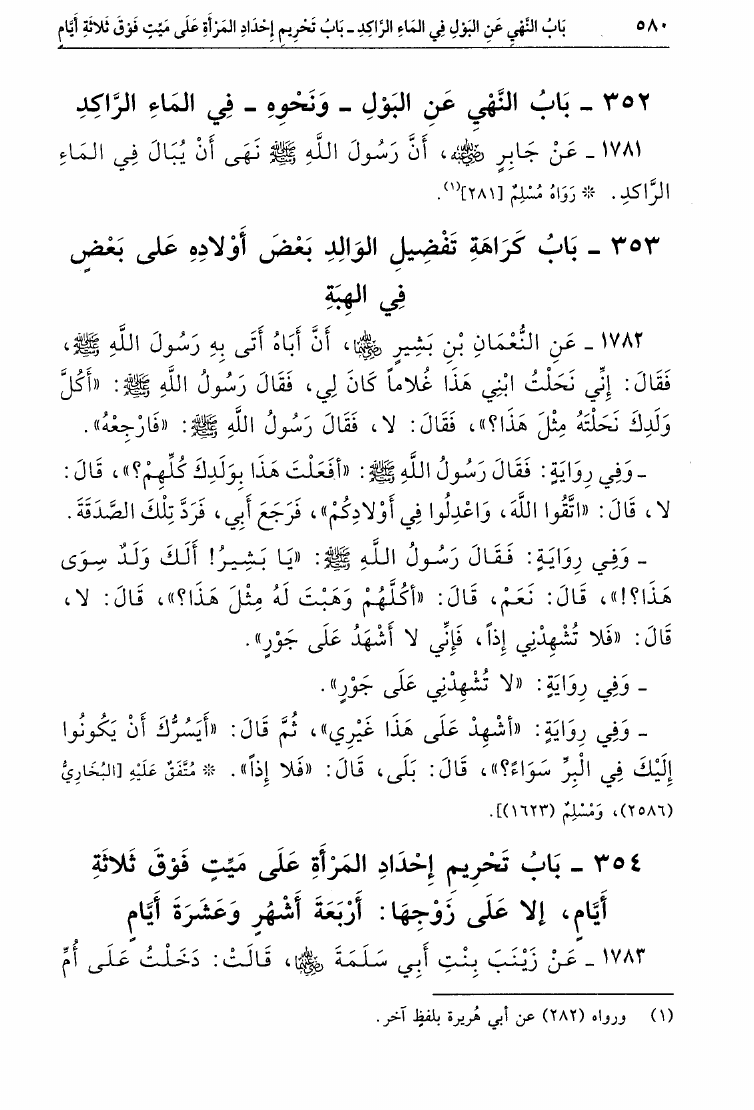 ٥٨٠ بَابُ النَّهْيِ عَنِ البَوْلِ فِي المَاءِ الرَّاكِدِ ـ بَابُ تَحْرِيمِ إِحْدَادِ المَرْأَةِ عَلَى مَيِّتٍ فَوْقَ ثَلَاثَةِ أَيَّامٍ
٣٥٢ ـ بَابُ النَّهْيِ عَنِ البَوْلِ ـ وَنَحْوِهِ ـ فِي المَاءِ الرَّاكِدِ
١٧٨١ ـ عَنْ جَابِرٍ رضي الله عنه، أَنَّ رَسُولَ اللَّهِ ﷺ نَهَى أَنْ يُبَالَ فِي المَاءِ
الرَّاكِدِ. * رَوَاهُ مُسْلِمٌ [٢٨١](١).
٣٥٣ ـ بَابُ كَرَاهَةِ تَفْضِيلِ الوَالِدِ بَعْضَ أَوْلادِهِ عَلى بَعْضٍ
فِي الهِبَةِ
١٧٨٢ ـ عَنِ النُّعْمَانِ بْنِ بَشِيرٍ رضي الله عنهما، أَنَّ أَبَاهُ أَتَى بِهِ رَسُولَ اللَّهِ ﷺ،
فَقَالَ: إِنِّي نَحَلْتُ ابْنِي هَذَا غُلاماً كَانَ لِي، فَقَالَ رَسُولُ اللَّهِ ﷺ: «أَكُلَّ
وَلَدِكَ نَحَلْتَهُ مِثْلَ هَذَا؟»، فَقَالَ: لا، فَقَالَ رَسُولُ اللَّهِ ﷺ: «فَارْجِعْهُ».
ـ وَفِي رِوَايَةٍ: فَقَالَ رَسُولُ اللَّهِ ﷺ: «أَفَعَلْتَ هَذَا بِوَلَدِكَ كُلِّهِمْ؟»، قَالَ:
لا، قَالَ: «اتَّقُوا اللَّهَ، وَاعْدِلُوا فِي أَوْلادِكُمْ»، فَرَجَعَ أَبِي، فَرَدَّ تِلْكَ الصَّدَقَةَ.
ـ وَفِي رِوَايَةٍ: فَقَالَ رَسُولُ اللَّهِ ﷺ: «يَا بَشِيرُ! أَلَكَ وَلَدٌ سِوَى
هَذَا؟!»، قَالَ: نَعَمْ، قَالَ: «أَكُلَّهُمْ وَهَبْتَ لَهُ مِثْلَ هَذَا؟»، قَالَ: لا،
قَالَ: «فَلا تُشْهِدْنِي إِذاً، فَإِنِّي لا أَشْهَدُ عَلَى جَوْرٍ».
ـ وَفِي رِوَايَةٍ: «لا تُشْهِدْنِي عَلَى جَوْرٍ».
ـ وَفِي رِوَايَةٍ: «أَشْهِدْ عَلَى هَذَا غَيْرِي»، ثُمَّ قَالَ: «أَيَسُرُّكَ أَنْ يَكُونُوا
إِلَيْكَ فِي الْبِرِّ سَوَاءً؟»، قَالَ: بَلَى، قَالَ: «فَلا إِذاً». * مُتَّفَقٌ عَلَيْهِ [البُخَارِيُّ
(٢٥٨٦)، وَمُسْلِمٌ (١٦٢٣)].
٣٥٤ ـ بَابُ تَحْرِيمِ إِحْدَادِ المَرْأَةِ عَلَى مَيِّتٍ فَوْقَ ثَلاثَةِ
أَيَّامٍ، إلا عَلَى زَوْجِهَا: أَرْبَعَةَ أَشْهُرٍ وَعَشَرَةَ أَيَّامٍ
١٧٨٣ ـ عَنْ زَيْنَبَ بِنْتِ أَبِي سَلَمَةَ رضي الله عنهما، قَالَتْ: دَخَلْتُ عَلَى أُمِّ
(١) ورواه (٢٨٢) عن أبي هُريرة بلفظٍ آخر.